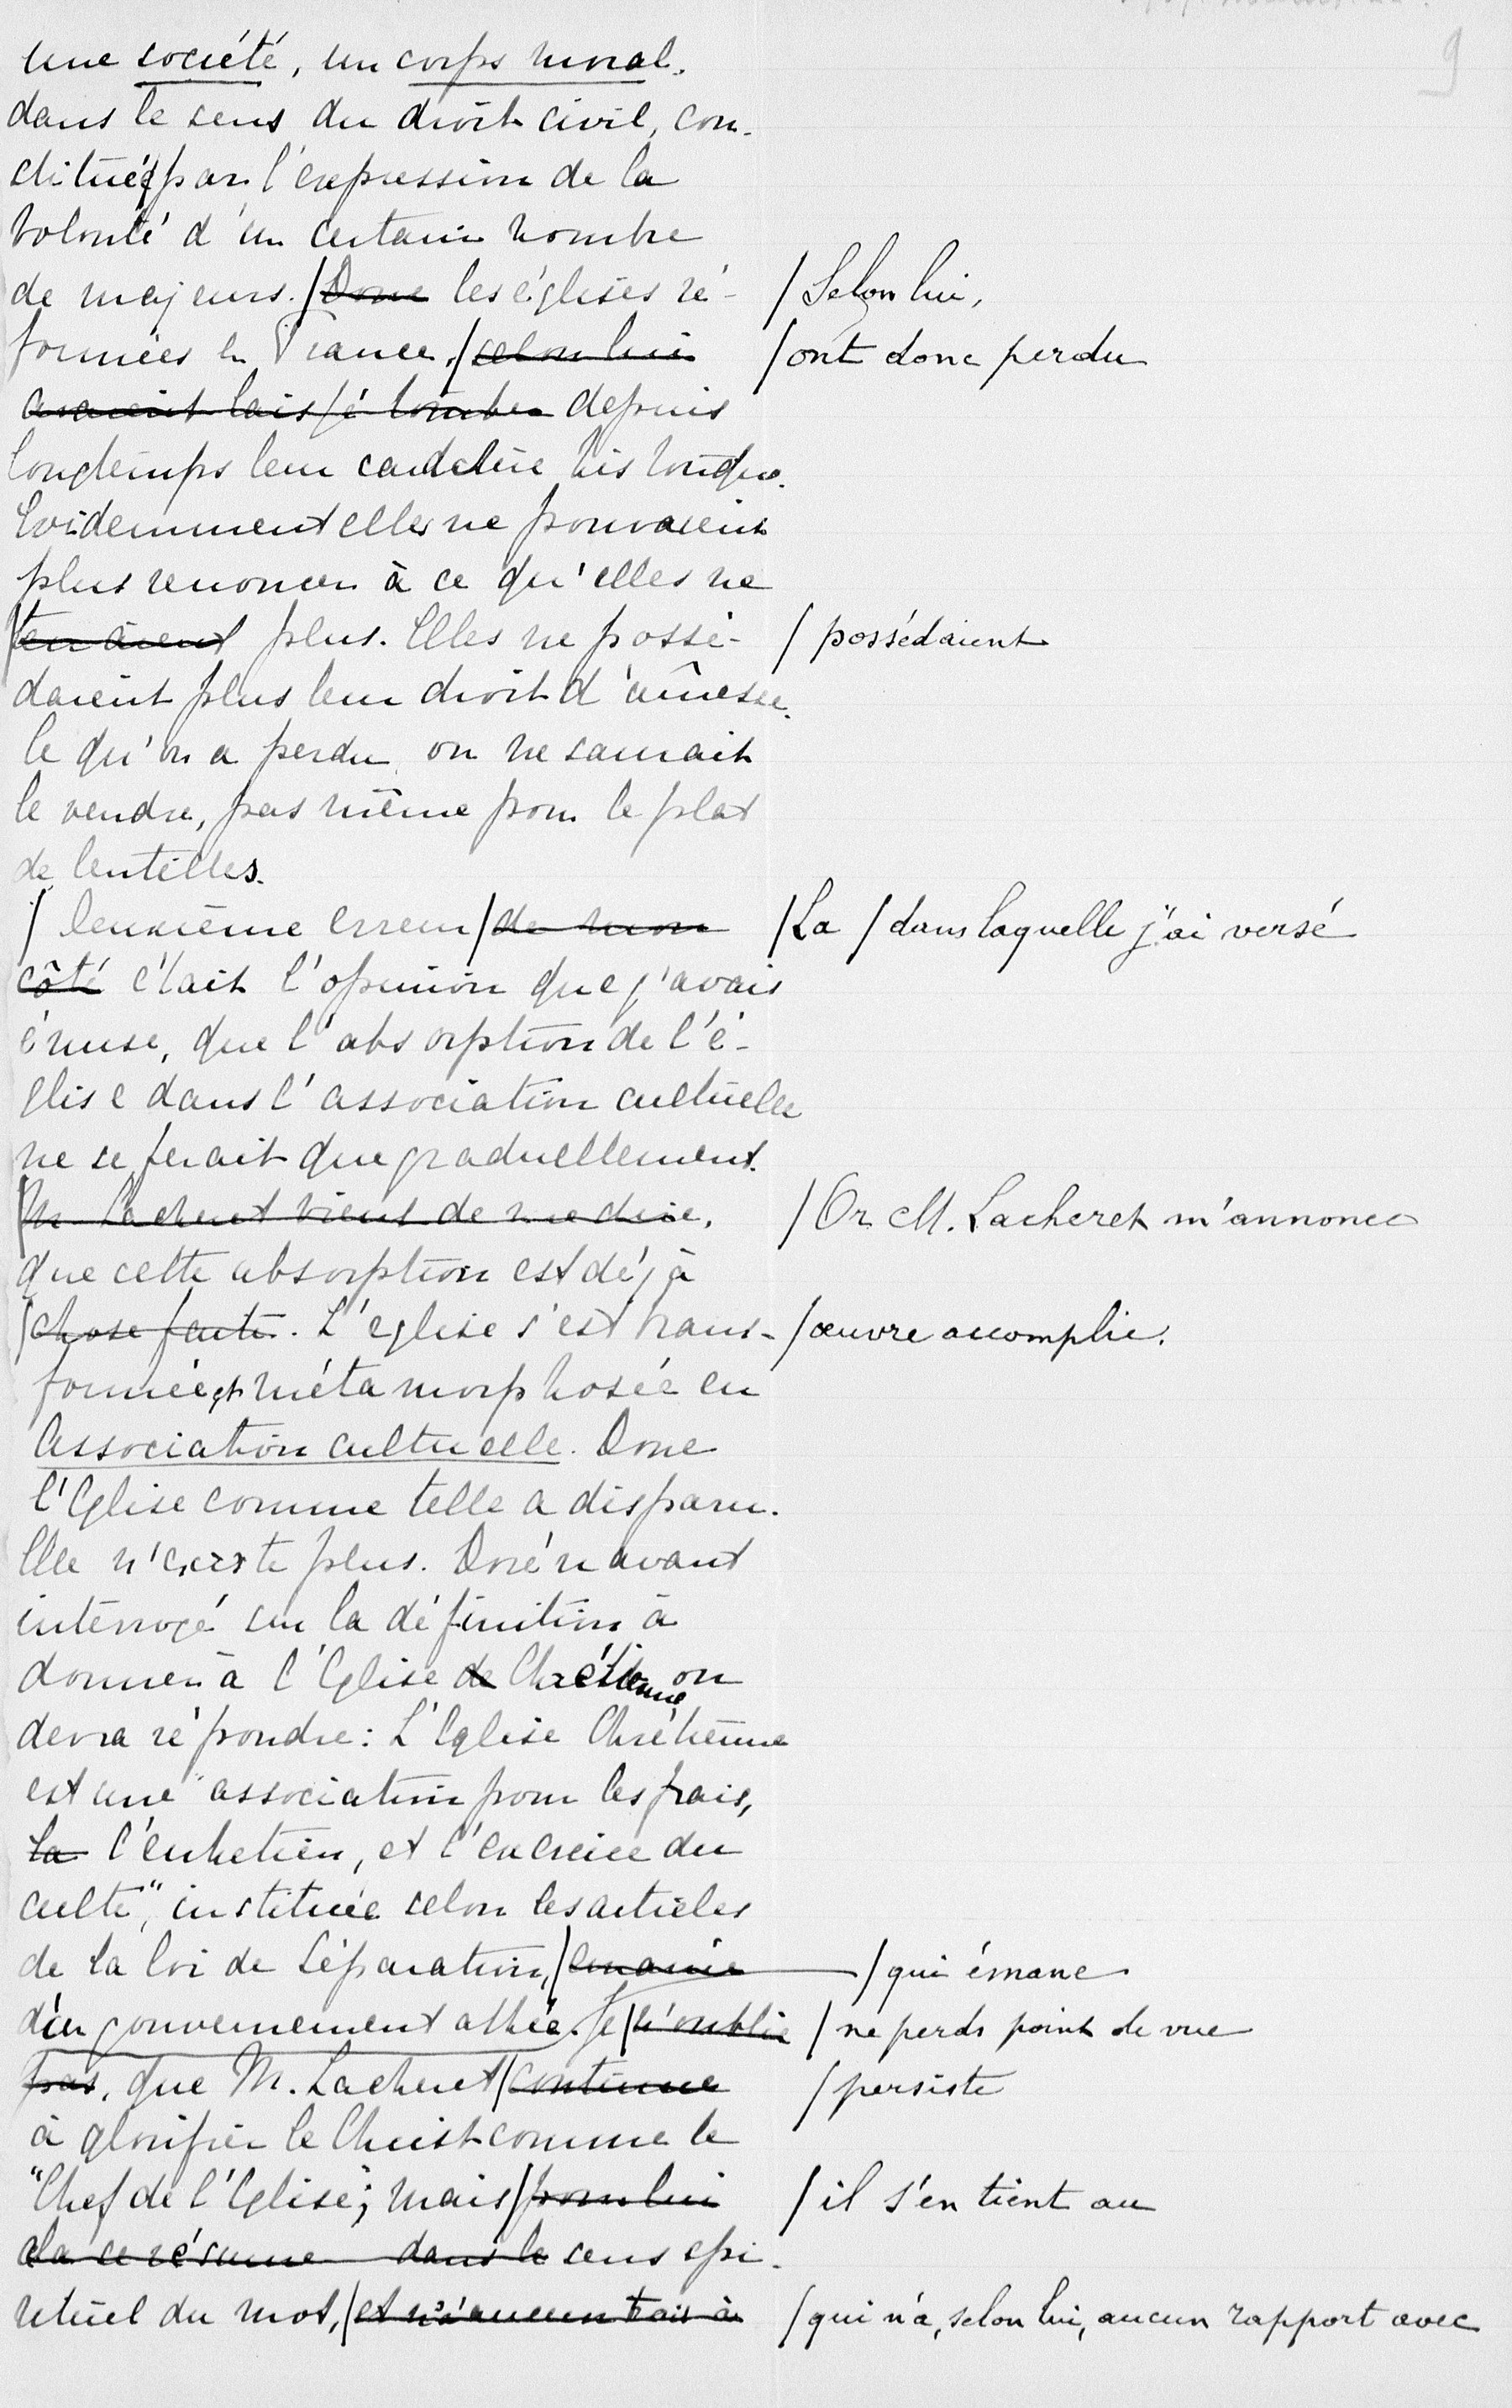 9
une société, un corps moral.
dans le sens du droit civil, con-
stituée par l'expression de la
volonté d'un certain nombre
de majeurs. /Donc les églises ré- /Selon lui,
formées en France, /selon lui /ont donc perdu
avaient laissé tomber depuis
longtemps leur caractère historique.
Evidemment elles ne pouvaient
plus renoncer à ce qu'elles ne
/tenaient plus. Elles ne possé- /possédaient
daient plus leur droit d'aînesse.
Ce qu'on a perdu on ne saurait
le vendre, pas même pour le plat
de lentilles.
/ Deuxième erreur /de mon /La /dans laquelle j'ai versé
côté c'était l'opinion que j'avais
émise, que l'absorption de l'é-
glise dans l'association cultuelle
ne se ferait que graduellement.
/M. Lacheret vient de me dire, /Or M. Lacheret m'annonce
que cette absorption est déjà
/chose faite. L'église s'est trans- /œuvre accomplie.
formée et métamorphosée en
Association cultuelle. Donc
l'Eglise comme telle a disparu.
Elle n'existe plus. Dorénavant
interrogé sur la définition à
donner à l'Eglise de Chrétienne on
devra répondre: L'Eglise Chrétienne
est une "association pour les frais,
la l'entretien, et l'exercice du
culte", instituée selon les articles
de la loi de Séparation, /émanée /qui émane
d'un gouvernement athée. Je /n'oublie /ne perds point de vue
pas, que M. Lacheret /continue /persiste
à glorifier le Christ comme le
"Chef de l'Eglise"; mais /pour lui /il s'en tient au
cela se résume dans le sens spi-
rituel du mot, /et n'a aucun trait à /qui n'a, selon lui, aucun rapport avec